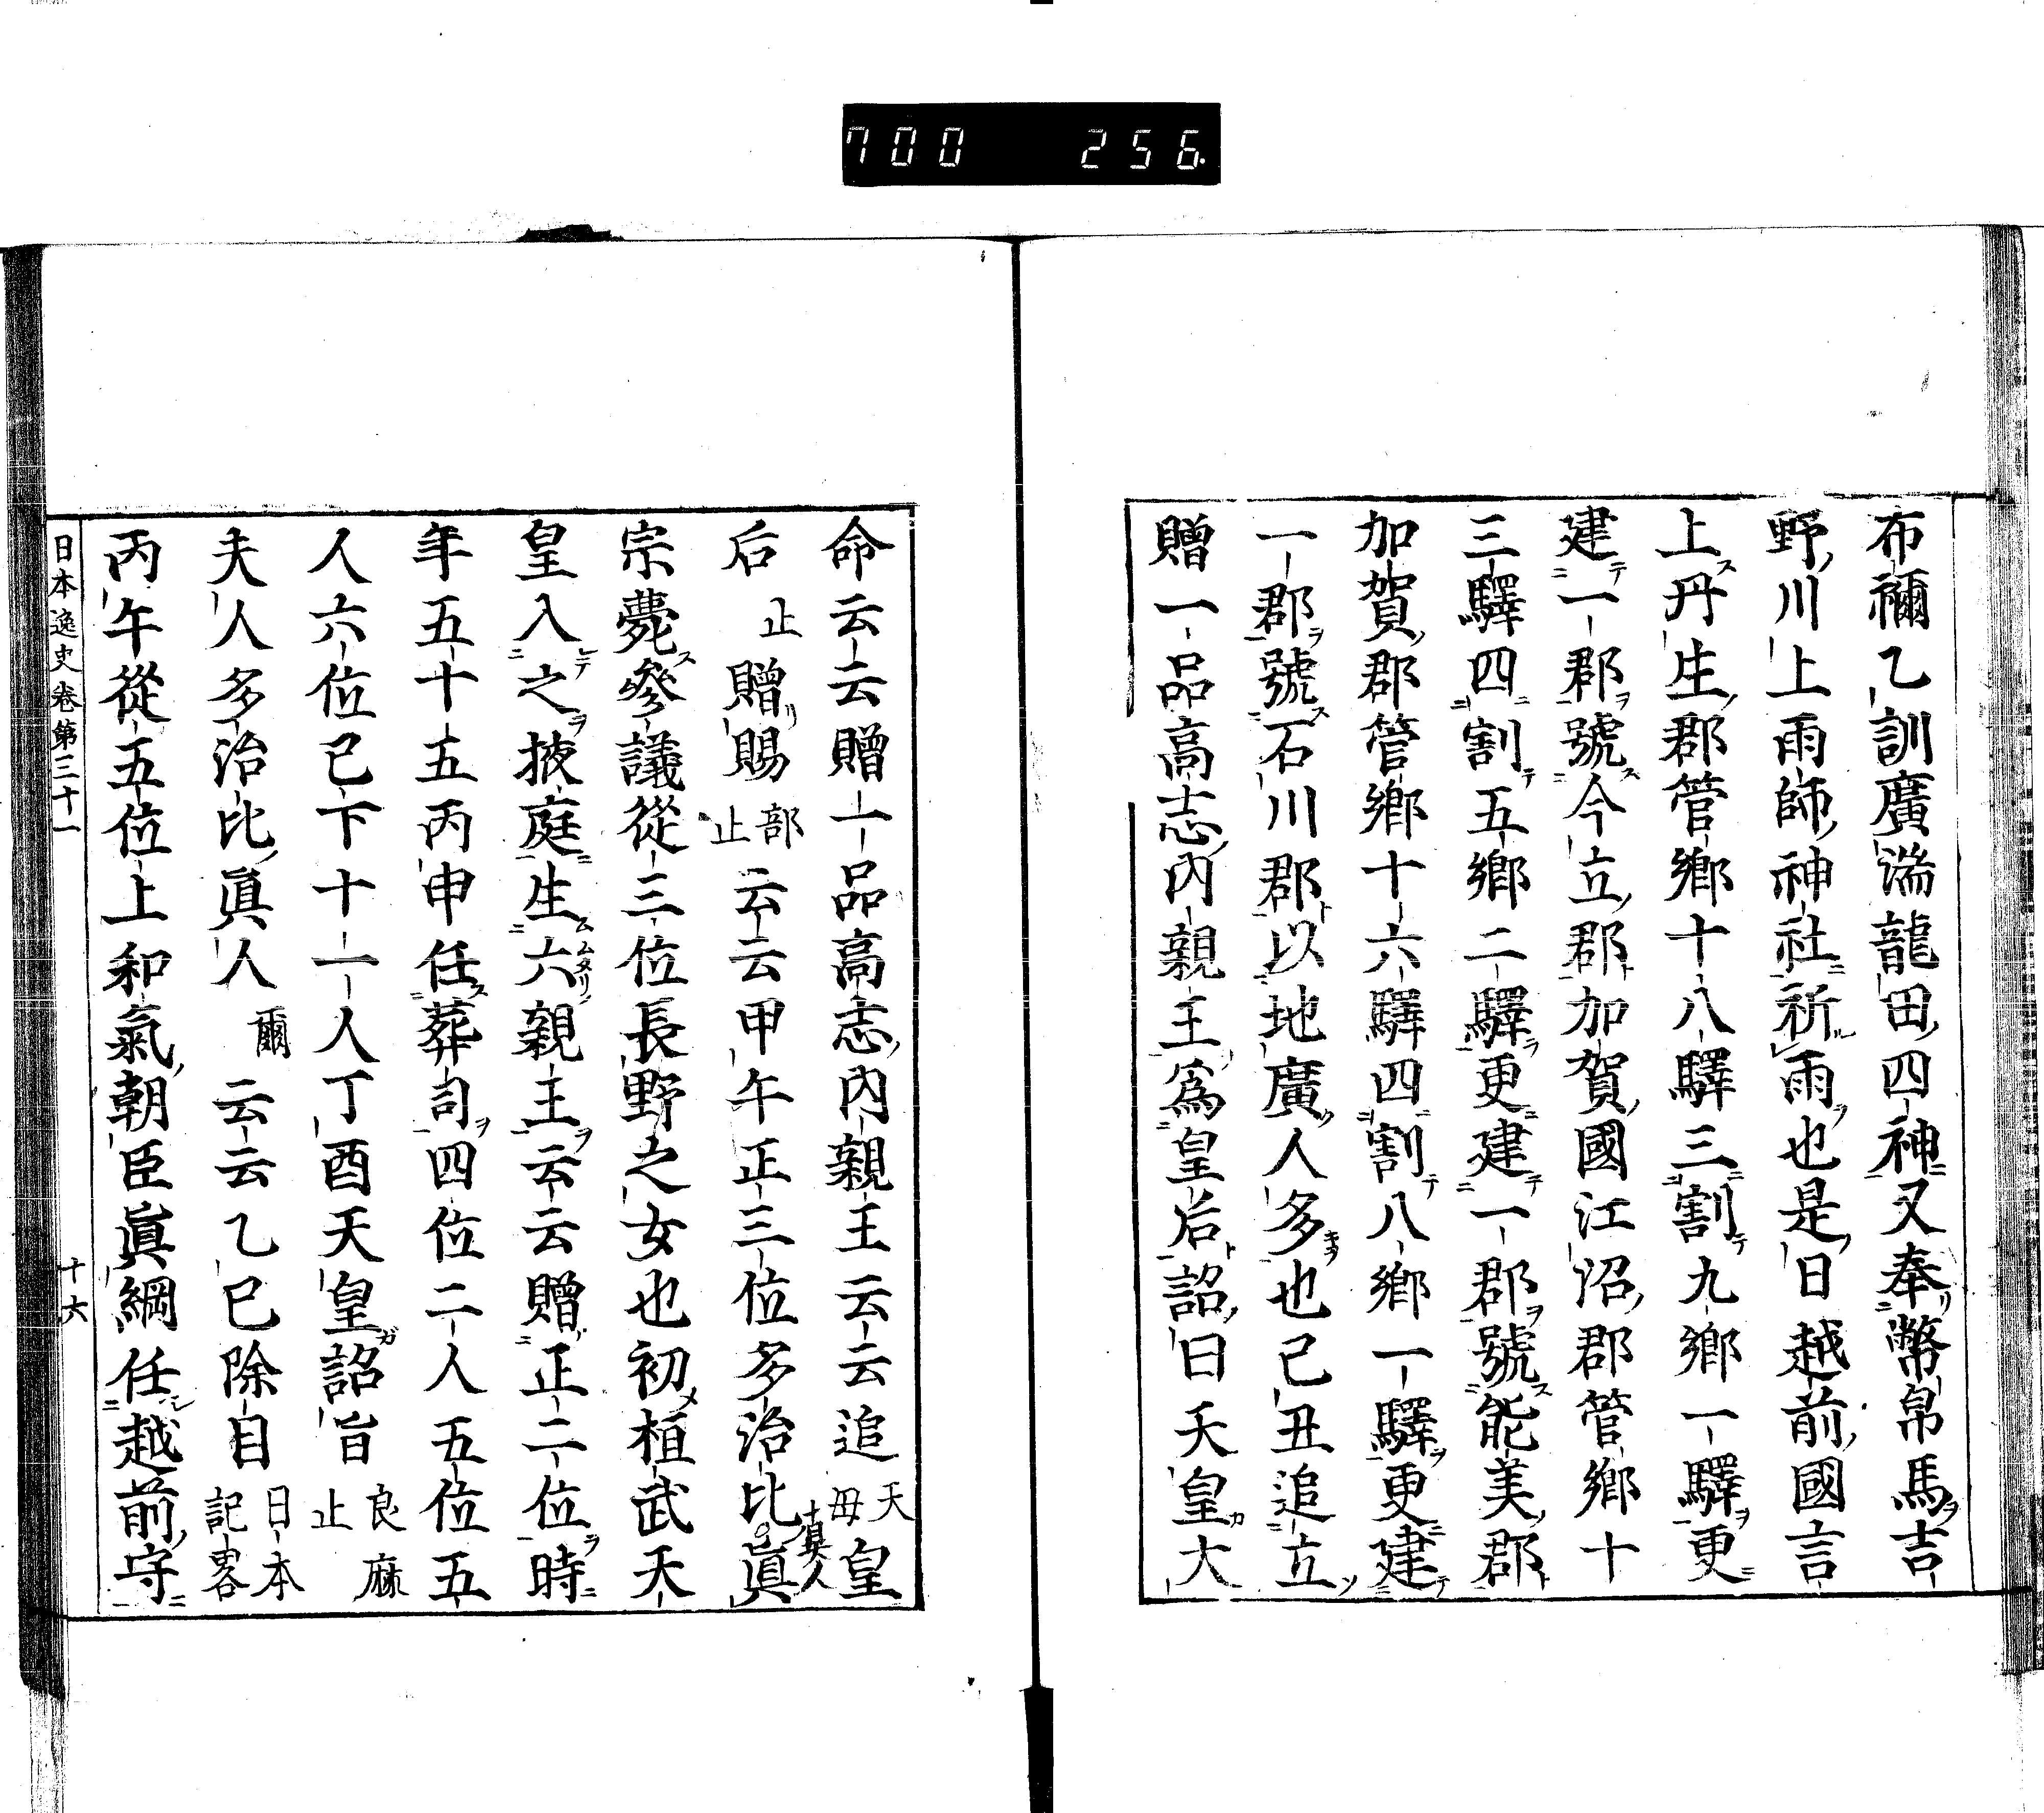 700 256.
布禰乙訓廣湍龍田四神又奉幣帛馬吉
野川上雨師神社祈雨也是日越前國言
上丹生郡管鄉十八驛三割九鄉一驛更
建一郡號今立郡加賀國江沼郡管鄉十
三驛四割五鄉二驛更建一郡號能美郡
加賀郡管鄉十六驛四割八鄉一驛更建
一郡號石川郡以地廣人多也己丑追立
贈一品高志內親王爲皇后詔曰天皇大
命云云贈一品高志內親王云云追天母皇
后止贈賜部止云云甲午正三位多治比眞
眞人
宗薨參議從三位長野之女也初桓武天
皇入之掖庭生六親王云云贈正二位時
年五十五丙申任葬司四位二人五位五
人六位已下十一人丁酉天皇詔旨良麻止
夫人多治比眞人爾云云乙巳除目日本記畧
丙午從五位上和氣朝臣眞綱任越前守
日本逸史卷第三十一 十六